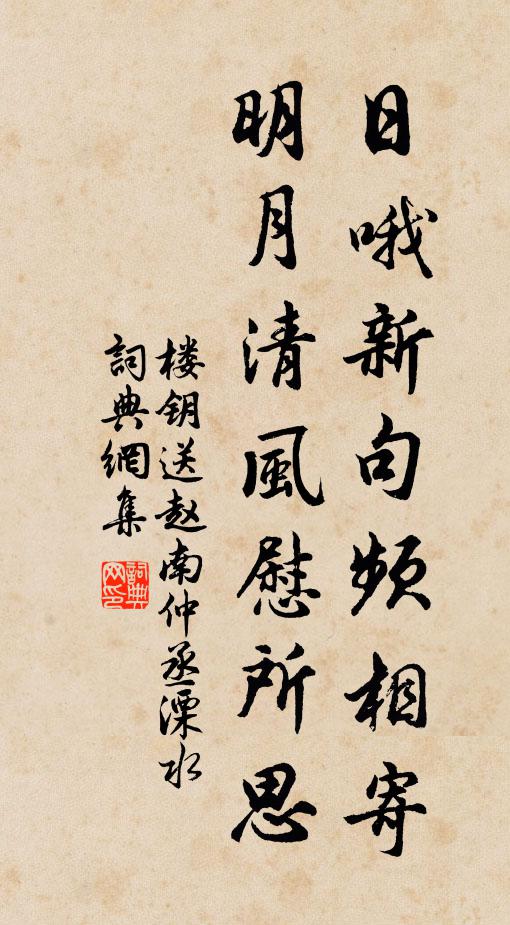 日哦新句頻相寄
明月清風慰所思
楼钥送赵南仲丞溧水
詞典網集
詞典网印